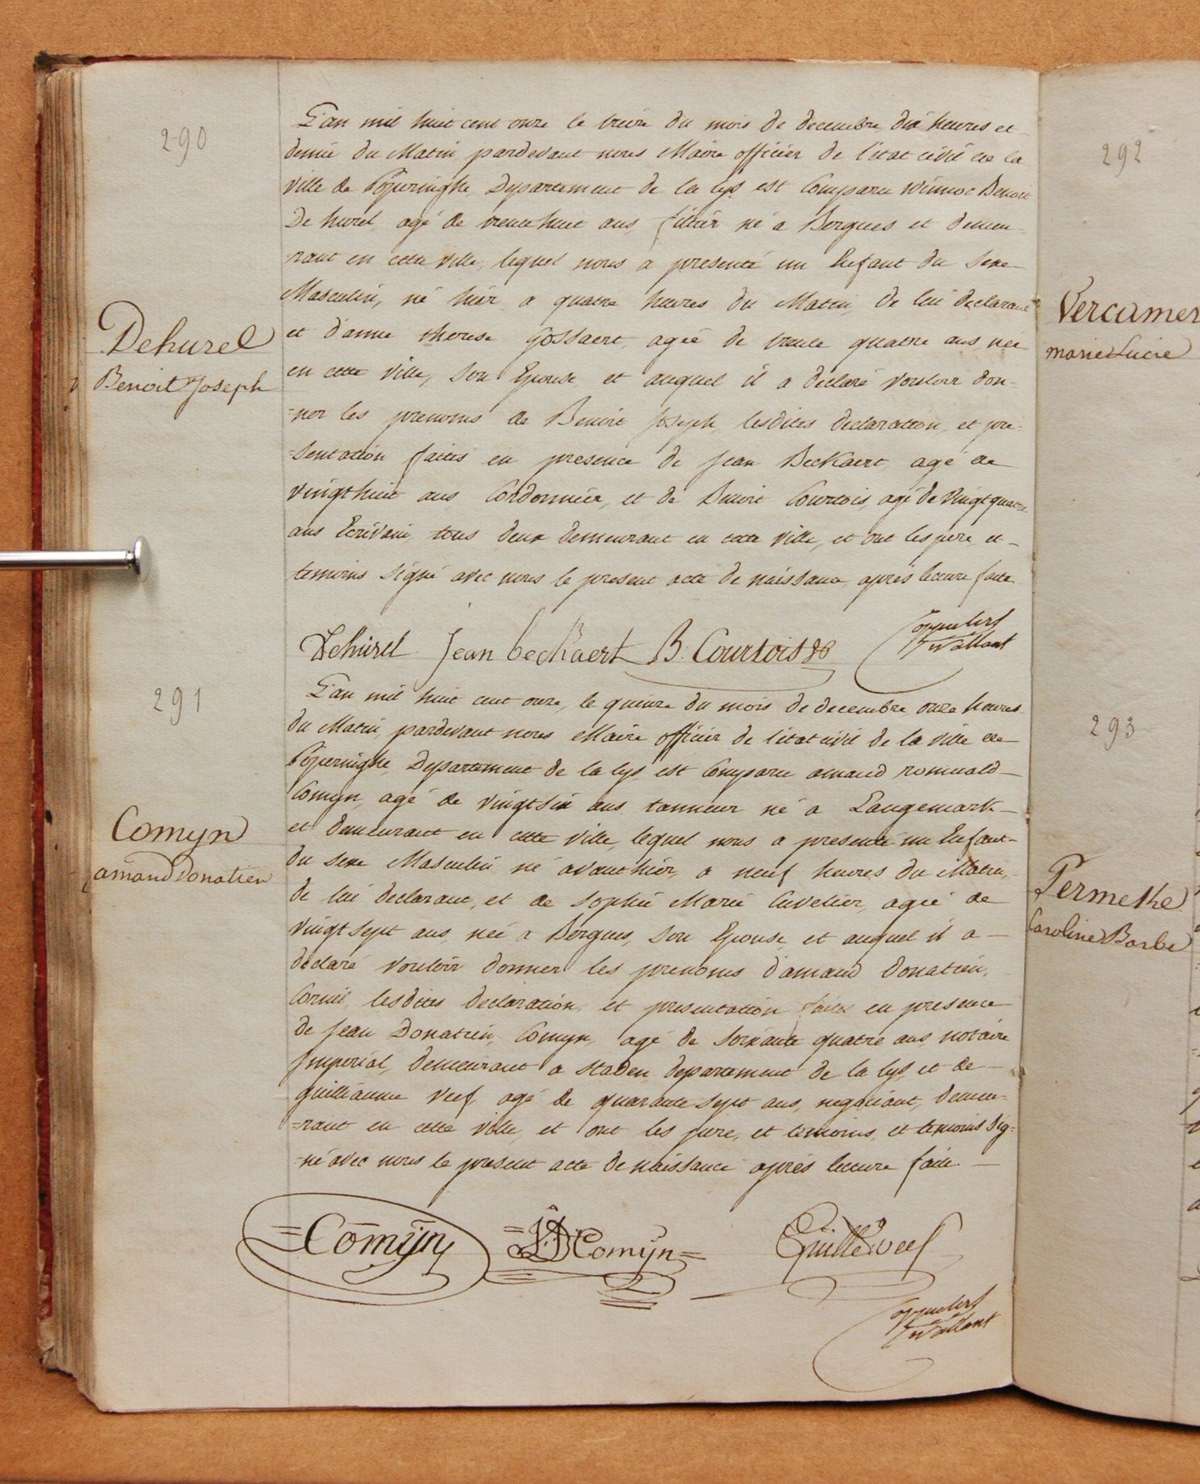 290
L'an mil huit cent onze le treize du mois de decembre dix heures et
demie du Matin pardevant nous Maire officier de l'état civil de la
ville de Poperinghe Departement de la Lys est Comparu Winnoc Benoit
De hurel agé de trente huit ans, né a Bergues et demeu-
rant en cette ville, lequel nous a presenté un Enfant du Sexe
Masculin, né hier a quatre heures du Matin de lui declarant
et d'anne therese Gossaert agée de trente quatre ans née
en cette ville, son Epouse et auquel il a declaré vouloir don-
-ner les prenoms de Benoit Joseph lesdites declaration et pre-
-sentation faites en presence de Jean Beckaert agé de
vingt huit ans Cordonnier, et de Benoit Courtois, agé de vingt quatre
ans Ecrivain, tous deux demeurant en cette ville, et ont les pere et
temoins signé avec nous le present acte de naissance, après lecture faite
Dehurel
Benoit Joseph
Dehurel Jean bechaert B. Courtois
291
L'an mil huit cent onze, le quinze du mois de decembre onze heures
du Matin pardevant nous Maire officier de l'état civil de la ville de
Poperinghe, Departement de la Lys est Comparu amand romuald
Comyn, agé de vingt six ans tanneur né a Langemark
et demeurant en cette ville, lequel nous a presenté un Enfant
du sexe Masculin né avant hier, a neuf heures du Matin,
de lui declarant, et de Sophie Marie Cuvelier, agée de
vingt sept ans, née a Bergues, son Epouse, et auquel il a
declaré vouloir donner les prenoms d'amand Donatien,
lesdites declaration, et presentation faites en presence
de Jean Donatien Comyn, agé de soixante quatre ans notaire
Imperial, demeurant a Staden departement de la Lys et de
guilliaume Veef agé de quarante sept ans, negociant, demeu-
-rant en cette ville, et ont les pere, et temoins, et temoins sig-
-né avec nous le present acte de naissance après lecture faite
Comyn
amand Donatien
Comyn JD Comyn Guille Veef
292
Vercamer
marie Lucie
293
Permeke
Caroline Barbe